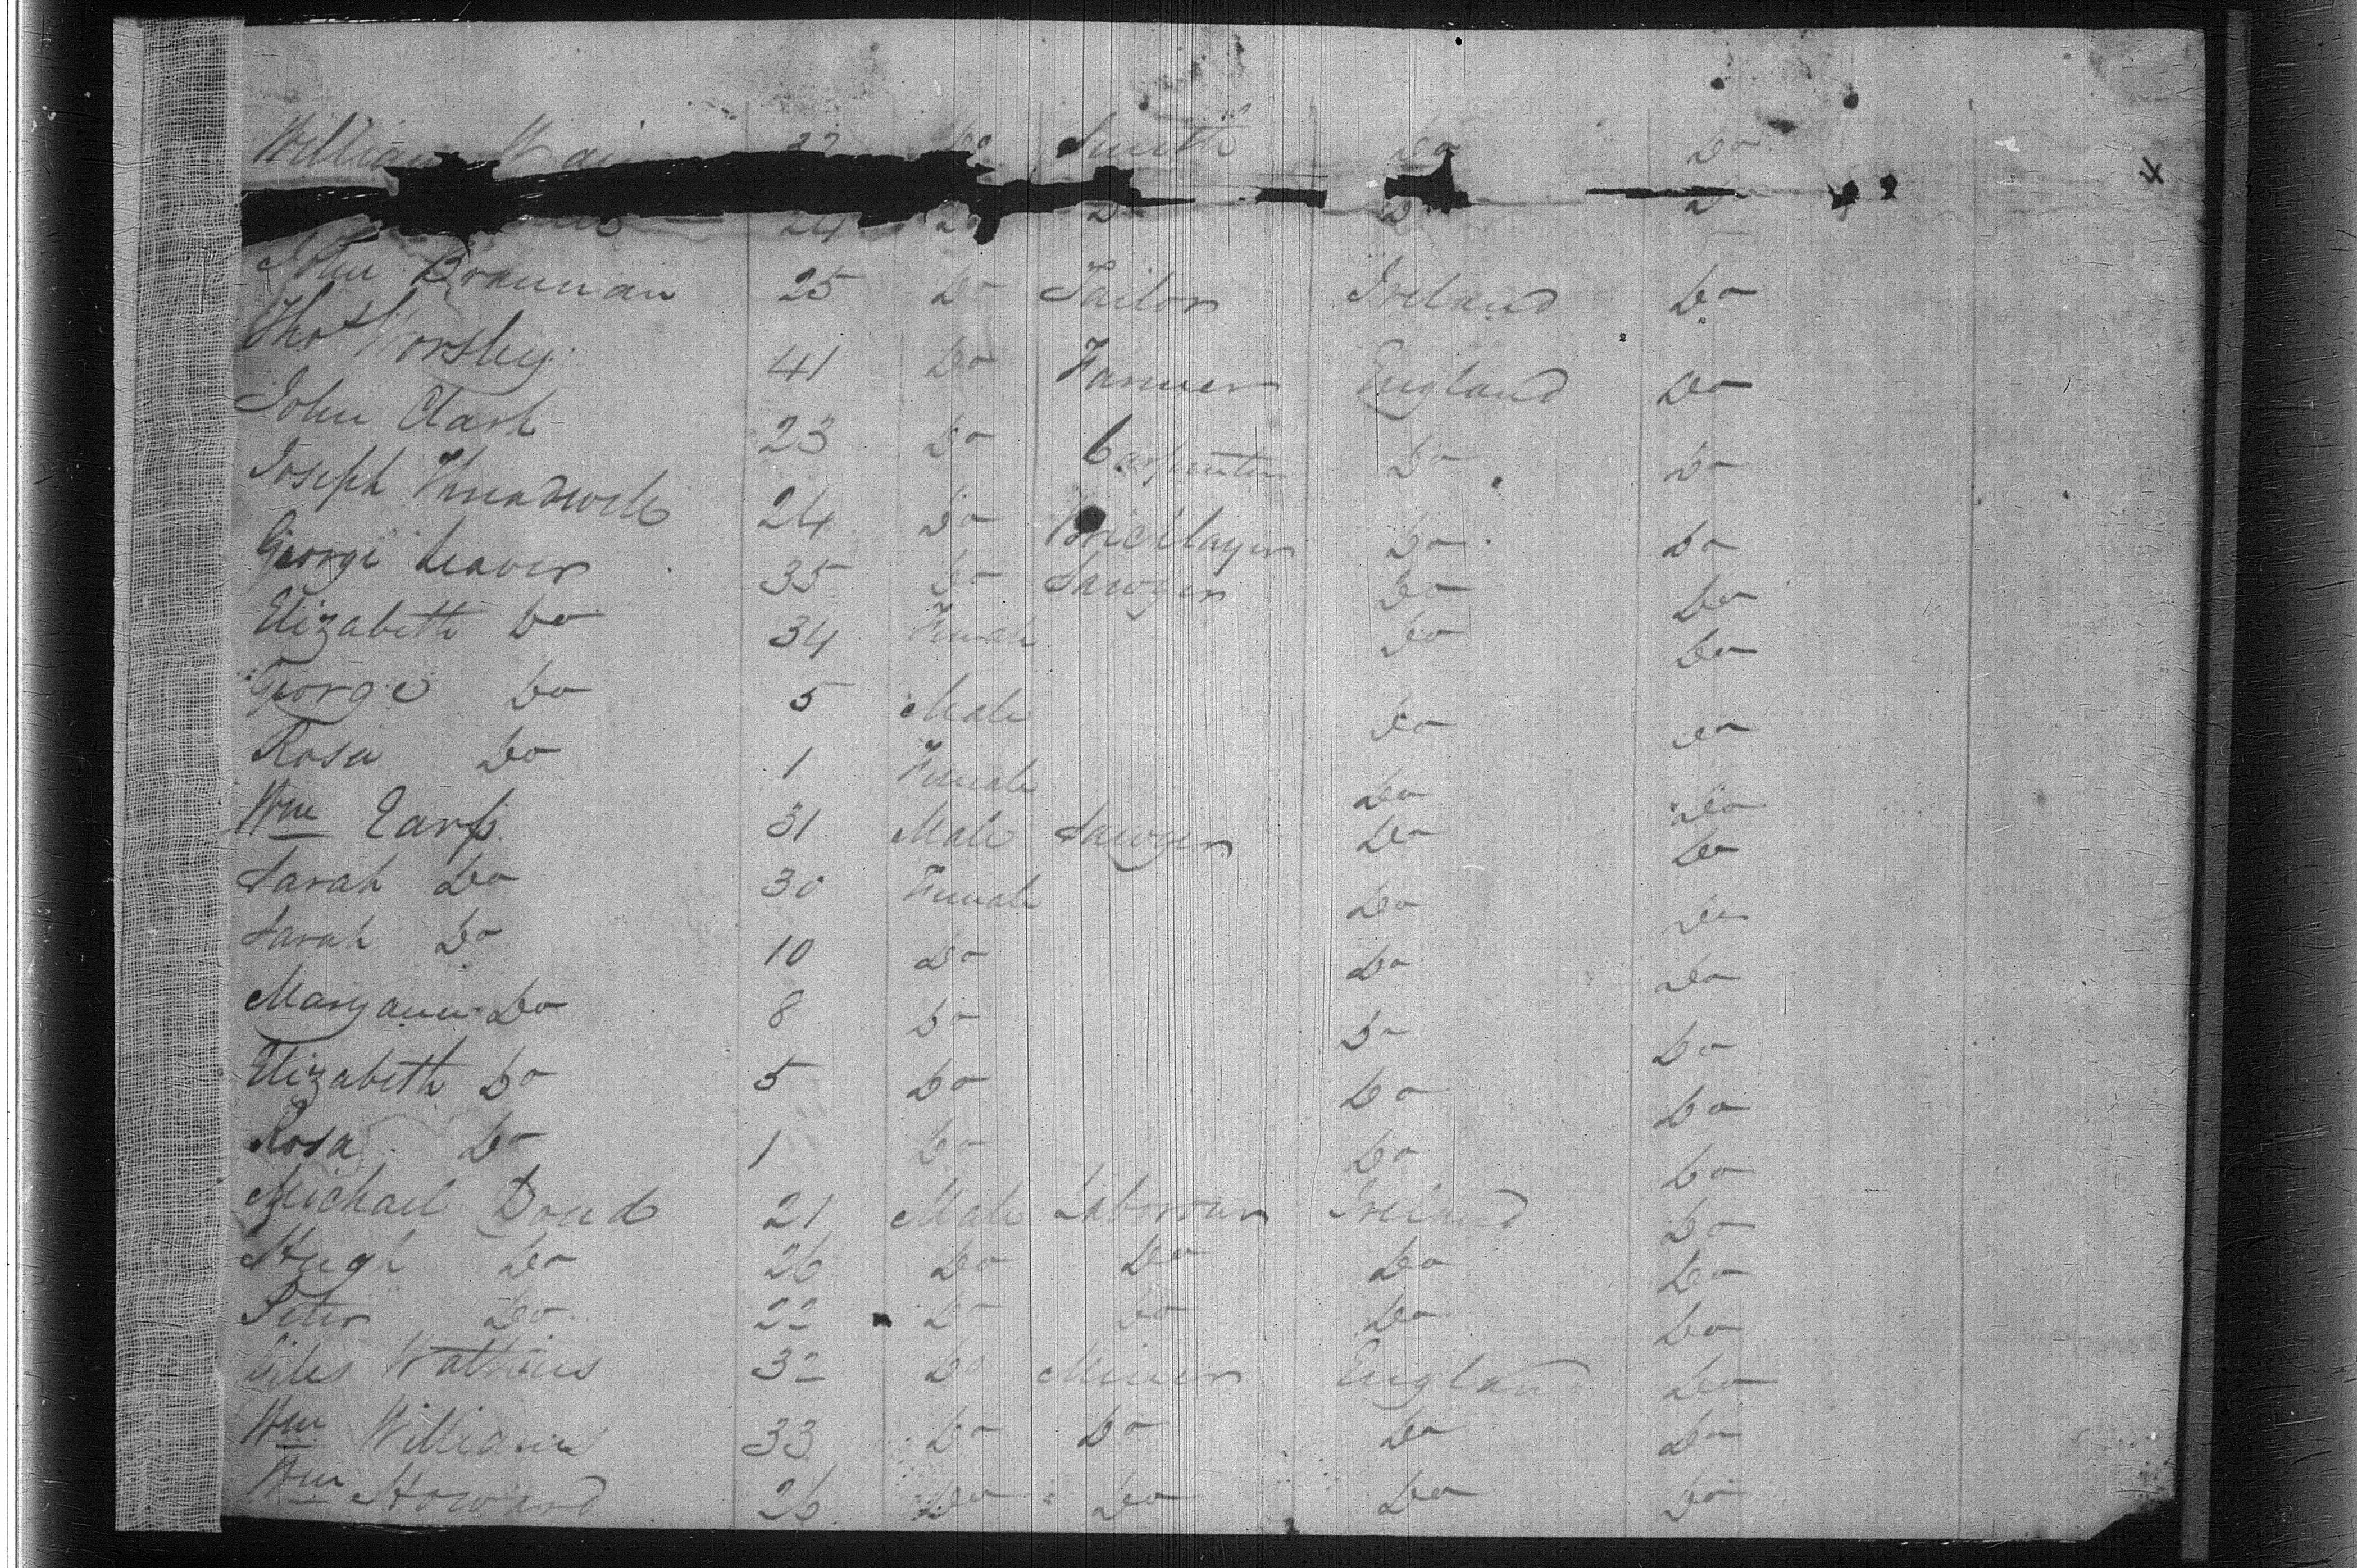 William Wai 22 Do Smith Do Do
24 Do Do Do Do
John Brannan 25 Do Tailor Ireland Do
Thos Worsley 41 Do Farmer England Do
John Clark 23 Do Carpenter Do Do
Joseph Threadwell 24 Do Bricklayer Do Do
George Leaver 35 Do Sawyer Do Do
Elizabeth Do 34 Female Do Do
George Do 5 Male Do Do
Rosa Do 1 Female Do Do
Wm Earp 31 Male Sawyer Do Do
Sarah Do 30 Female Do Do
Sarah Do 10 Do Do Do
Maryann Do 8 Do Do Do
Elizabeth Do 5 Do Do Do
Rosa Do 1 Do Do Do
Michael Doud 21 Male Laborour Ireland Do
Hugh Do 26 Do Do Do Do
Peter Do 22 Do Do Do Do
Giles Watkins 32 Do Miner England Do
Wm Williams 33 Do Do Do Do
Wm Howard 26 Do Do Do Do
4